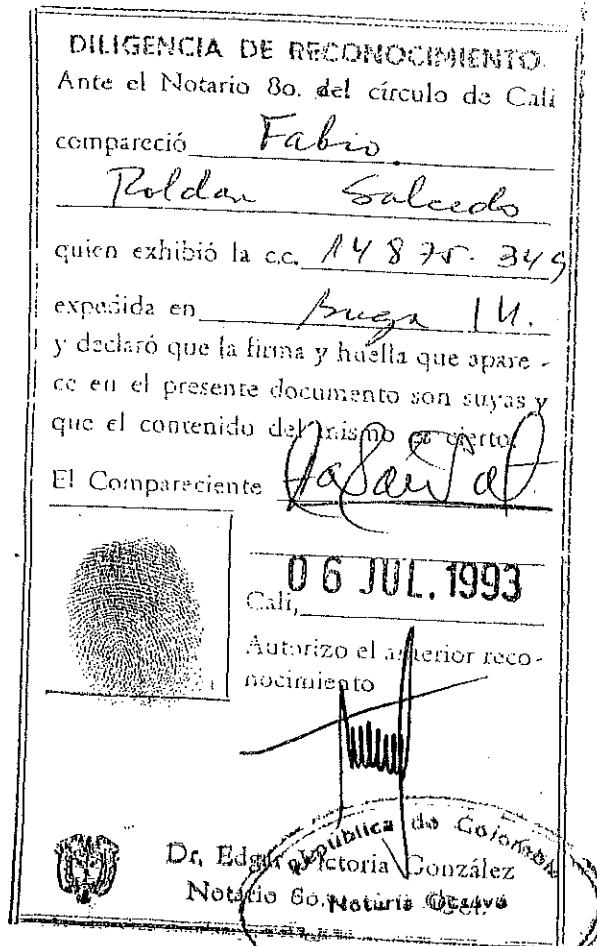 DILIGENCIA DE RECONOCIMIENTO
Ante el Notario 8o. del círculo de Cali
compareció Fabio
Roldan Salcedo
quien exhibió la c.c. 14 875. 349
expedida en Buga
y declaró que la firma y huella que apare-
ce en el presente documento son suyas y
que el contenido del mismo es cierto.
El Compareciente
06 JUL. 1993
Cali,
Autorizo el anterior reco-
nocimiento
República de Colombia
Dr. Edgar Victoria González
Notario 8o.
Notaría Octava